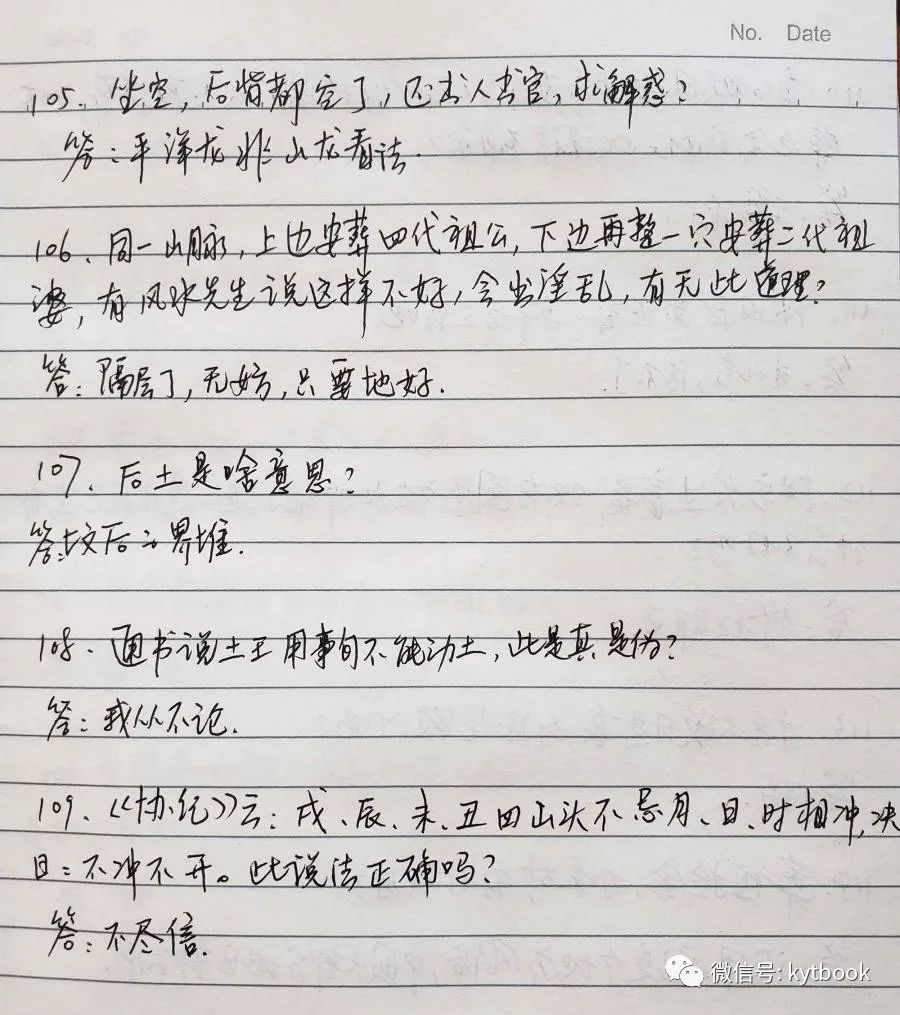 No. Date
105、坐空，后背都空了，还出人出官，求解惑？
答：平洋龙非山龙看法.
106、同一山脉，上边安葬四代祖公，下边再整一穴安葬二代祖
婆，有风水先生说这样不好，会出淫乱，有无此道理？
答：隔层了，无妨，只要地好.
107、后土是啥意思？
答：坟后之界堆.
108、通书说土王用事旬不能动土，此是真是伪？
答：我从不论.
109、《协纪》云：戌、辰、未、丑四山头不忌月、日、时相冲，决
曰：不冲不开。此说法正确吗？
答：不尽信.
微信号: kytbook